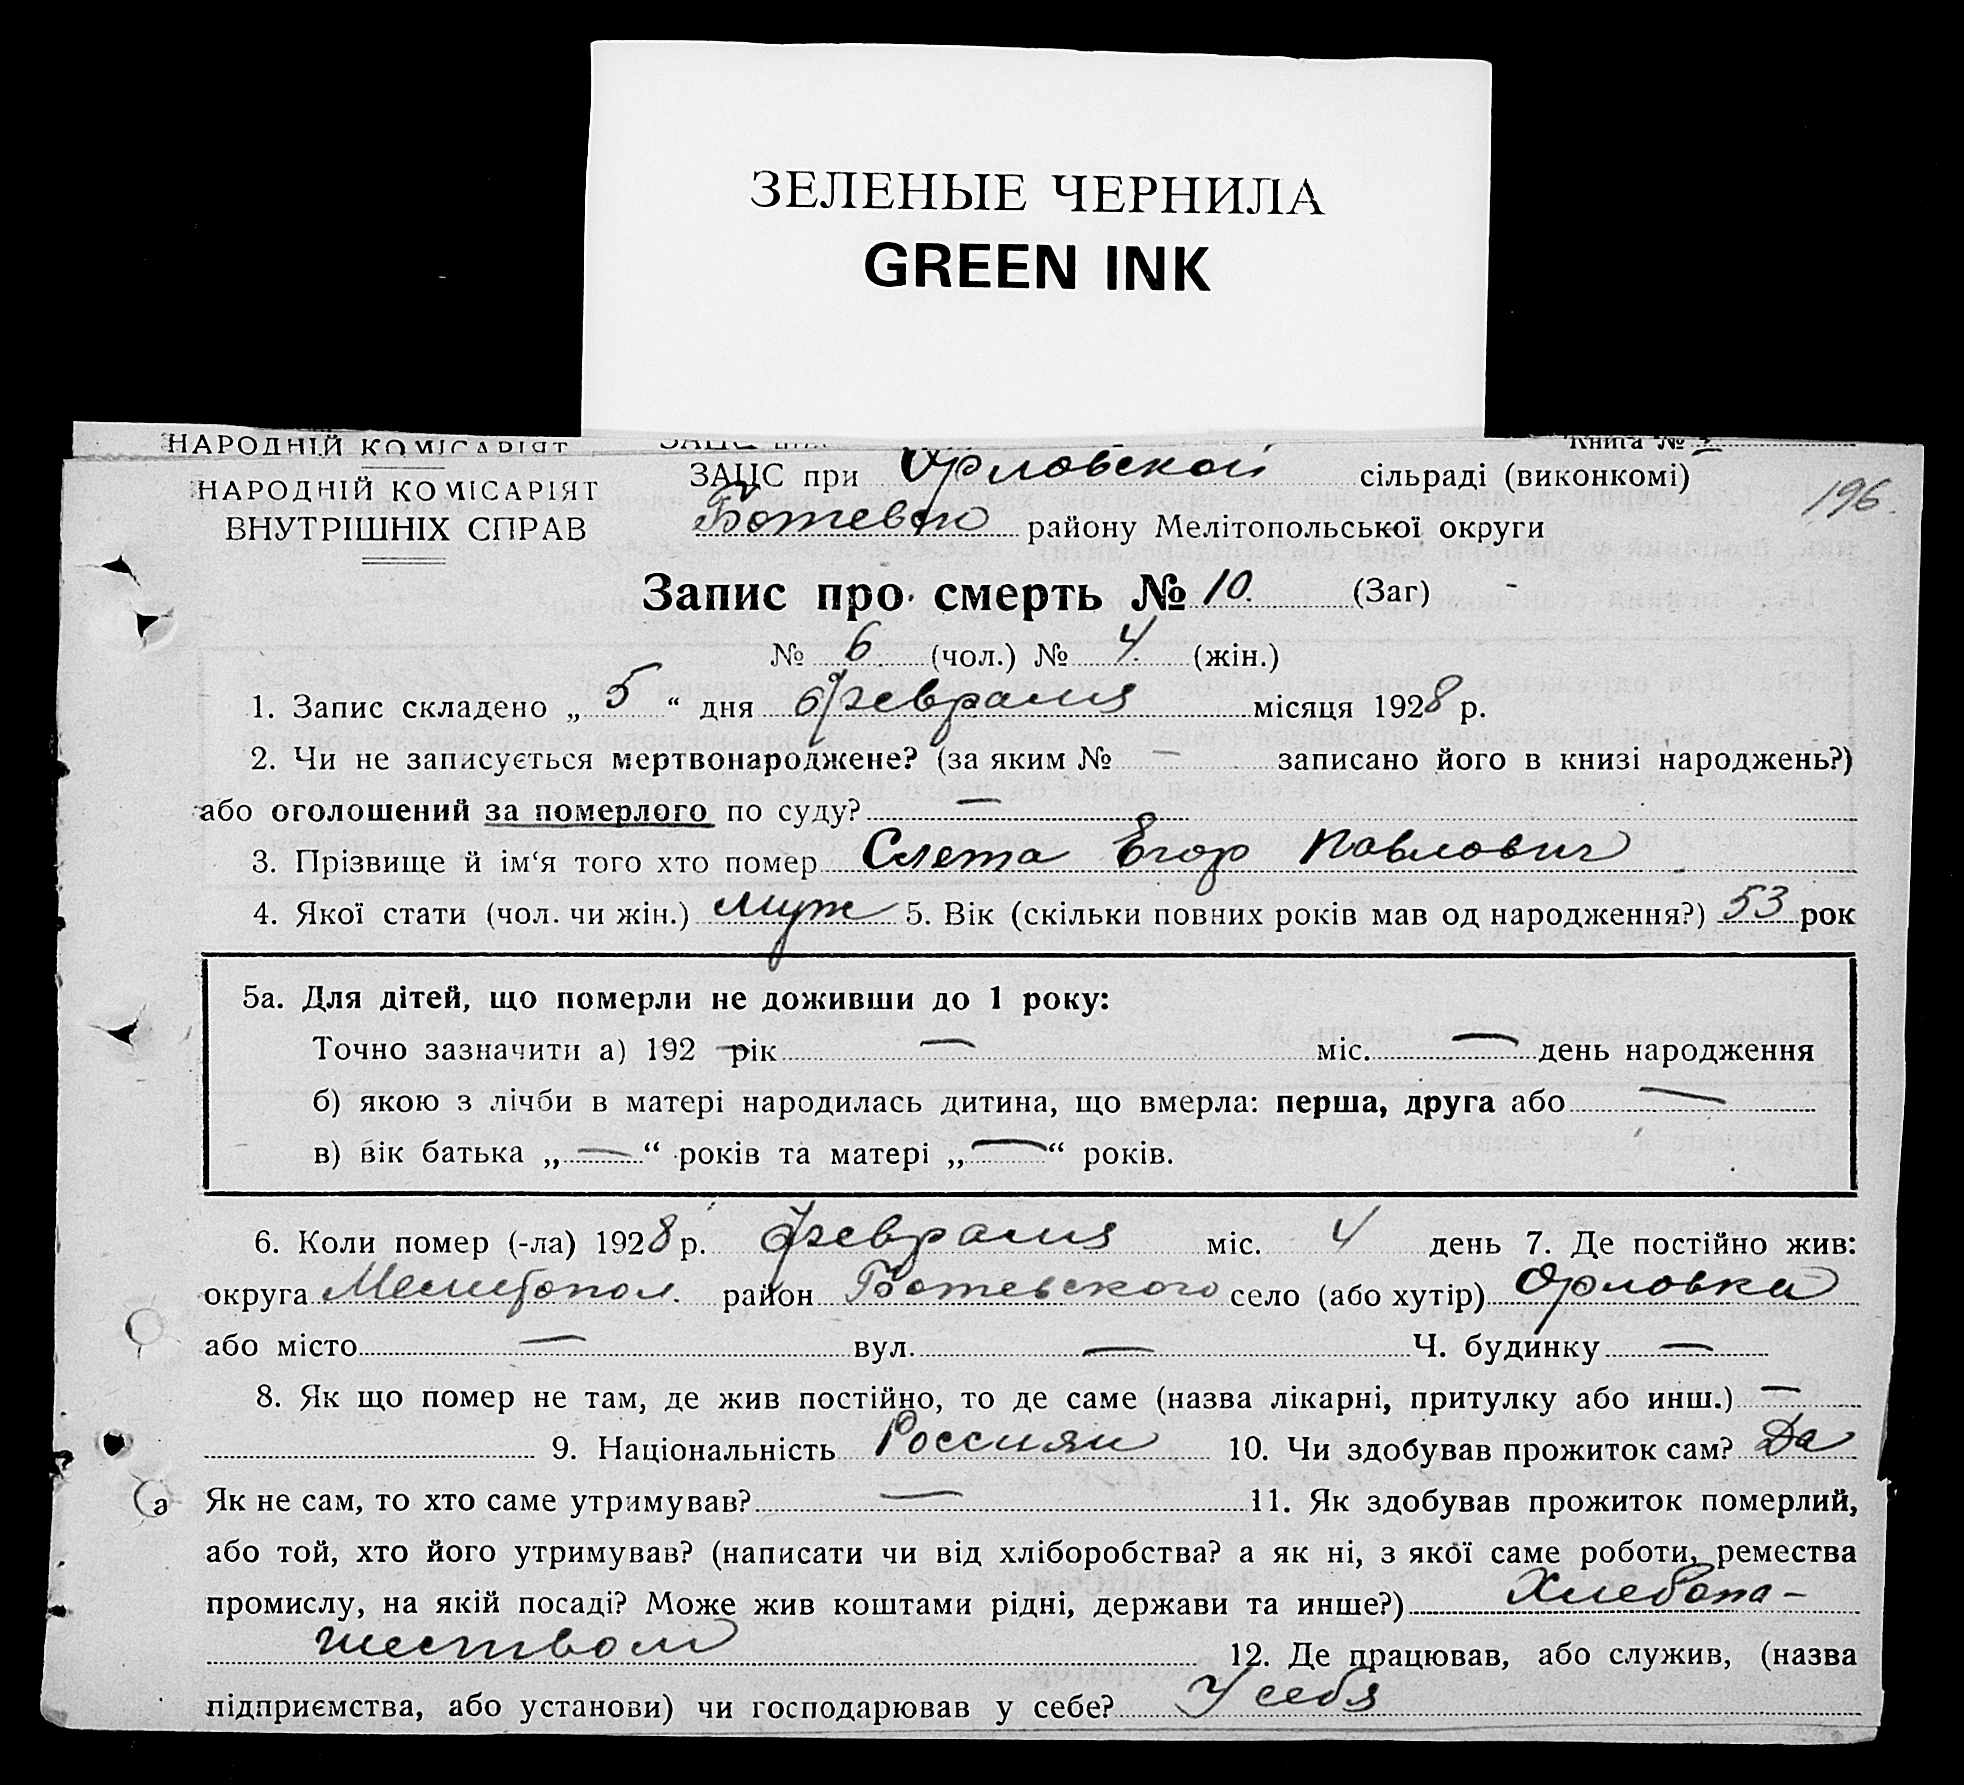 ЗЕЛЕНЫЕ ЧЕРНИЛА
GREEN INK
НАРОДНІЙ КОМІСАРІЯТ
Книга №
ЗАЦС при Орловской сільраді (виконкомі)
НАРОДНІЙ КОМІСАРІЯТ
ВНУТРІШНІХ СПРАВ
196
району Мелітопольської округи
Запис про смерть № 10. (Заг)
№ 6 (чол.) № 4 (жін.)
1. Запис складено „ 5 “ дня февраля місяця 1928 р.
2. Чи не записується мертвонароджене? (за яким № — записано його в книзі народжень?)
або оголошений за померлого по суду? —
3. Прізвище й ім‘я того хто помер Слета Егор Павлович
4. Якої стати (чол. чи жін.) муж 5. Вік (скільки повних років мав од народження?) 53 рок
5а. Для дітей, що померли не доживши до 1 року:
Точно зазначити а) 192 — рік — міс. — день народження
б) якою з лічби в матері народилась дитина, що вмерла: перша, друга або —
в) вік батька „ — “ років та матері „ — “ років.
6. Коли помер (-ла) 1928 р. февраля міс. 4 день 7. Де постійно жив:
округа Мелитопол. район Ботевского село (або хутір) Орловка
або місто — вул. — Ч. будинку —
8. Як що помер не там, де жив постійно, то де саме (назва лікарні, притулку або инш.) —
9. Національність Россиян 10. Чи здобував прожиток сам? Да
Як не сам, то хто саме утримував? — 11. Як здобував прожиток померлий,
або той, хто його утримував? (написати чи від хліборобства? а як ні, з якої саме роботи, ремества
промислу, на якій посаді? Може жив коштами рідні, держави та инше?) Хлебопа-
шеством 12. Де працював, або служив, (назва
підприємства, або установи) чи господарював у себе? У себя